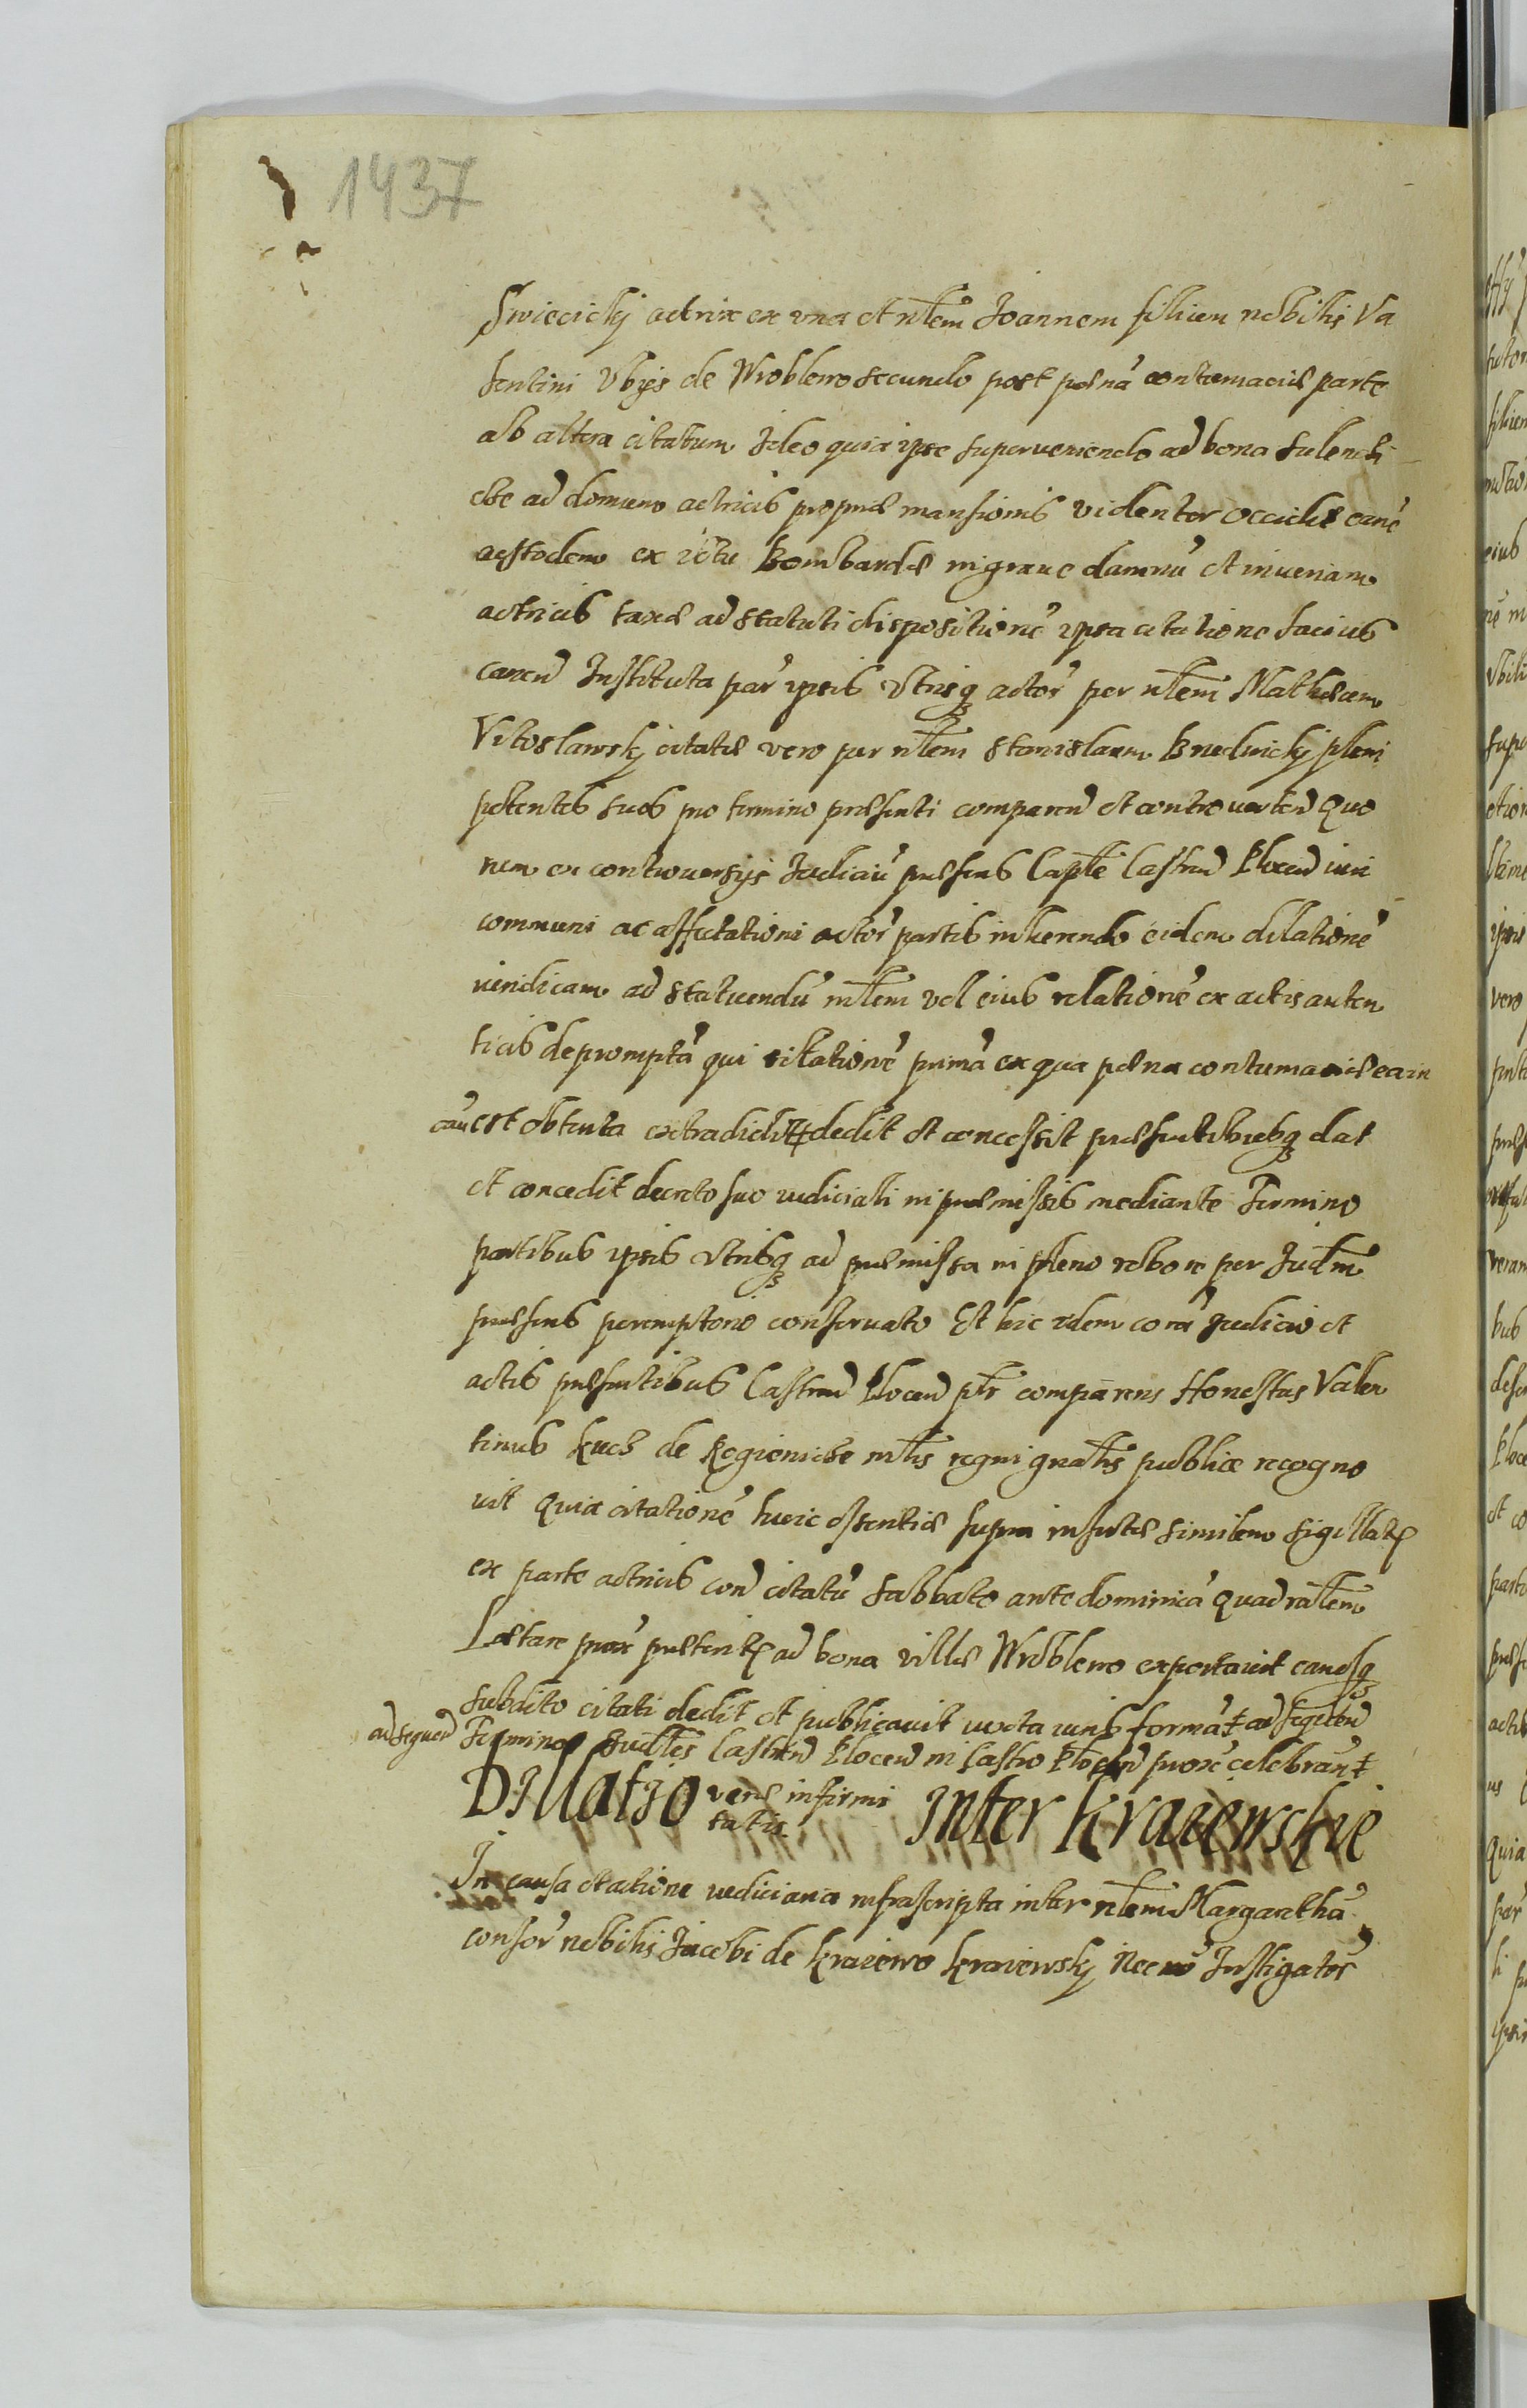 1437
Swiecickÿ actrix ex vna et nłem Joannem filium nobilis Va
lentini Vbÿs de Wroblewo secundo post pœnã contumaciæ parte
ab altera citatum Ideo quia ipse superueniendo ad bona
ad domum actricis propriæ mansionis violenter occidit canẽ
custodem ex ictu Bombardæ in graue damnũ et iniuriam
actricis taxæ ad statuti dispositionẽ ipsa citatione lacius
Instituta par ipsis vtrisq actor per nłem Mathiam
Vitoslawskÿ citatis vero per nłem Stanislaum pleni
potentes suos pro termino præsenti comparen et controuerten Quo
rum ex controuersÿs Judiciũ præsens Capłe Castren Plocen iuri
communi ac affectationi actor partis inherendo eidem dilationẽ
iuridicam ad statuendũ młem vel eius relationẽ ex actis auten
ticis depromptã qui citationẽ primã ex qua pœna contumaciæ ea in
cau est obtenta extradidit dedit et concessit præsentibusq dat
et concedit decreto suo iudiciali in præmissis mediante Termino
partibus ipsis vtrisq ad præmissa in pleno robore per Judm
præsens peremptorio conseruato Et hic idem corã Judicio et
actis præsentibus Castren Plocen płr comparens Honestus Valen
tinus Kuch de młis regni gnałis publicæ recogno
uit Quia citationẽ huic essentiæ supra insertæ similem sigillat
ex parte actricis con citatũ Sabbato ante dominicã Quadrałem
Lætare præterit ad bona villæ Wroblewo exportauit eandsq
subdito citati dedit et publicauit iuxta iuris formã ad sequen
ad sequen Terminos Judłes Castren Plocen in Castro Plocen celebran
Dillatio veræ infirmi
tatis Inter Kraiewskie
In causa citatione iudiciaria infrascripta inter nłem Margarethã
consor nobilis Jacobi de Kraiewo Kraiewskÿ Nec Instigator